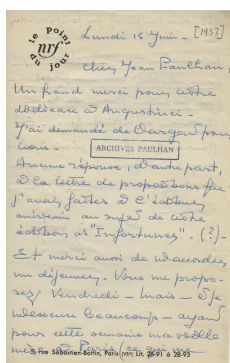 le point
nrf
du jour
Lundi 15 Juin - [1953]
Cher Jean Paulhan,
Un grand merci pour votre
dédicace d'Angustinci -
J'ai demandé de Oargaud pour
vous -
ARCHIVES PAULHAN
Aucune réponse, d'autre part,
à la lettre de propositions que
j'avais faites à l'éditeur
au sujet de votre
édition d'"Infortunes". (?) -
Et merci aussi de m'accorder
un déjeuner. Vous me propo-
sez Vendredi - mais - d'ici
beaucoup - ayant
pour cette semaine ma vieille
mère à Paris (ce qui
5, rue Sébastien-Bottin, Paris (VIIe) Lit. 28-91 à 28-93